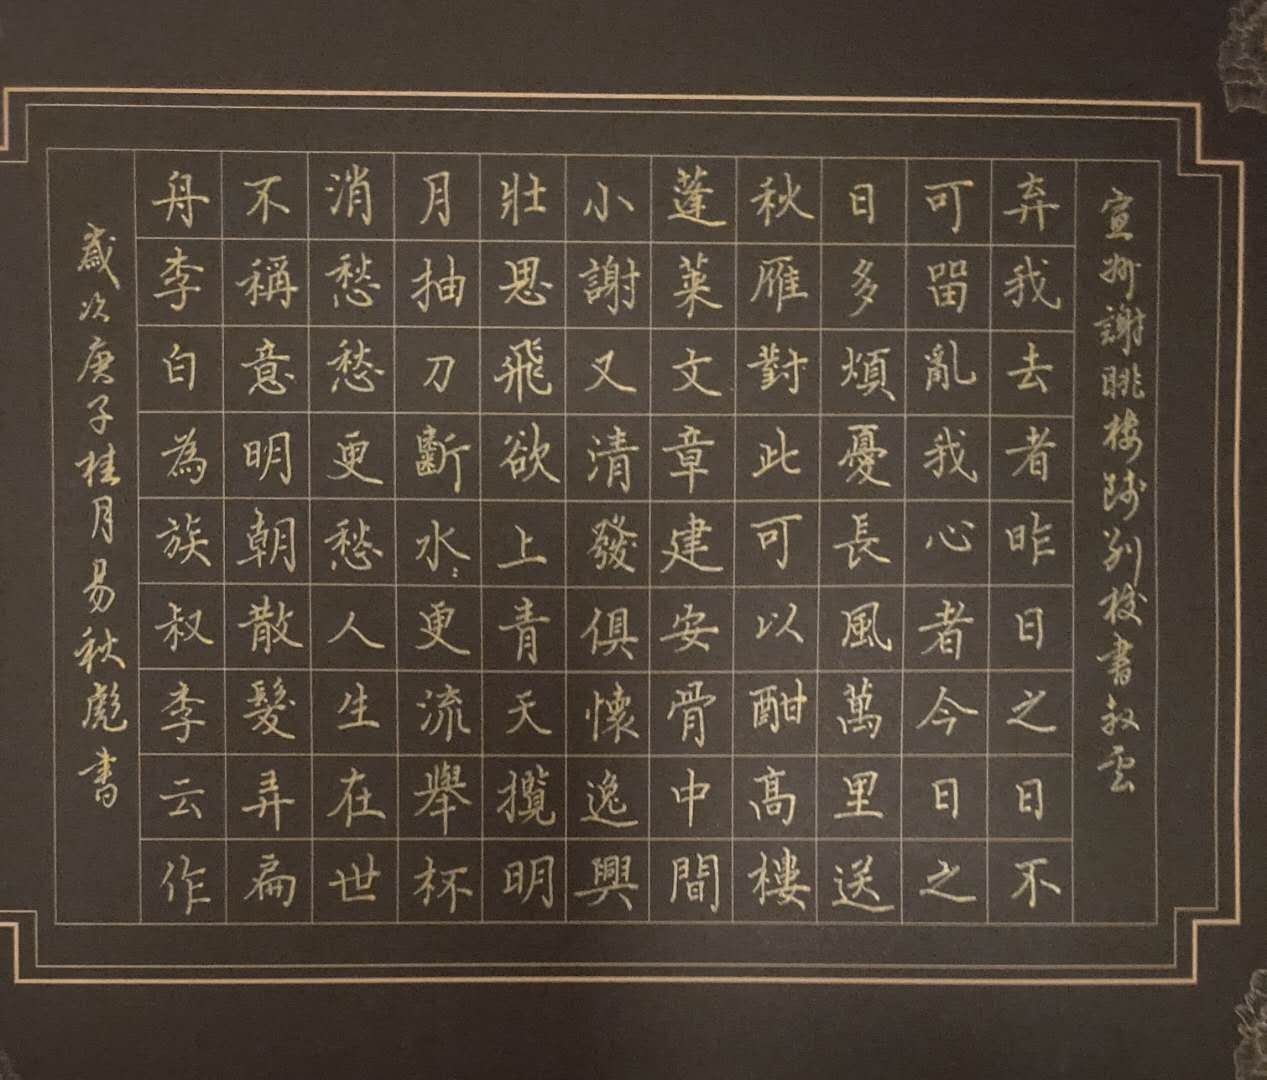 宣州謝朓樓餞別校書叔雲
弃我去者昨日之日不
可留亂我心者今日之
日多煩憂長風萬里送
秋雁對此可以酣高樓
蓬萊文章建安骨中間
小謝又清發俱懷逸興
壯思飛欲上青天攬明
月抽刀斷水：更流舉杯
消愁愁更愁人生在世
不稱意明朝散髮弄扁
舟李白為族叔李云作
歲次庚子桂月易秋彪書